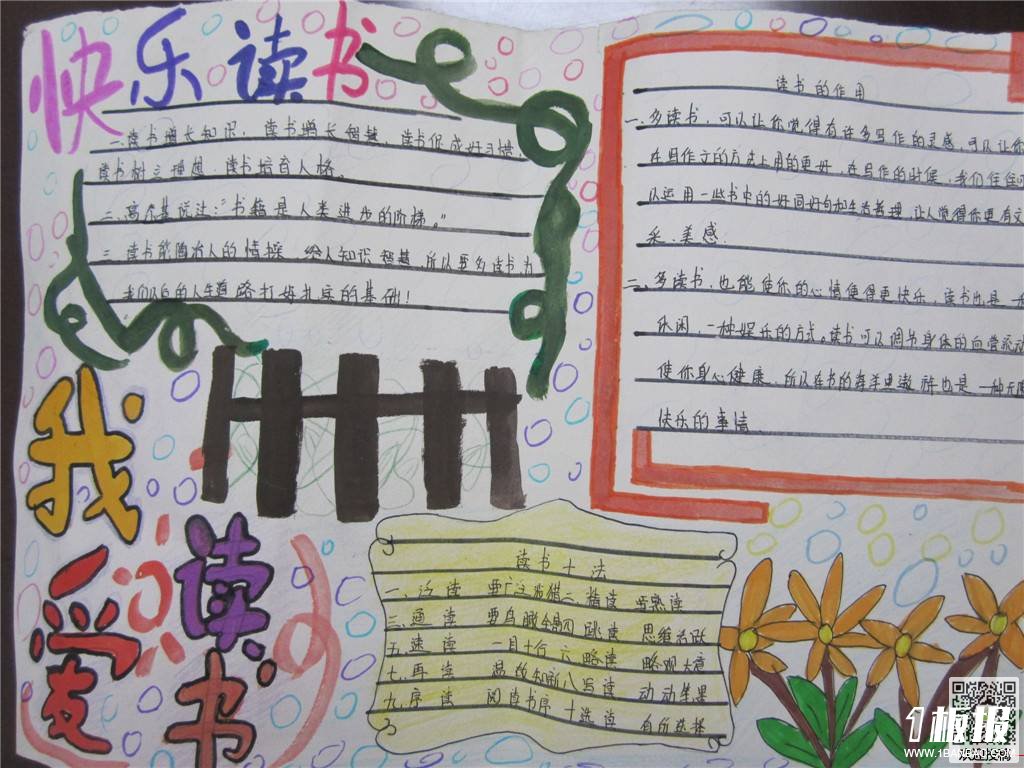 快乐读书
一.读书增长知识,读书增长智慧,读书促成好习惯,
读书树立理想,读书培育人格。
二.高尔基说过:“书籍是人类进步的阶梯。”
三.读书能陶冶人的情操,给人知识智慧,所以要多读书,为
我们以后的人生道路打好扎实的基础!
读书的作用
一.多读书,可以让你觉得有许多写作的灵感,可以让你
在写作文的方法上用的更好,在写作的时候,我们往往可
以运用一些书中的好词好句和生活哲理,让人觉得你更有文
采、美感.
二、多读书,也能使你的心情便得更快乐,读书也是一
休闲,一种娱乐的方式。读书可以调节身体的血管流动
使你身心健康、所以在书的海洋里遨游也是一种无限
快乐的事情
我
爱
读
书
读书十法
一、泛读 要广泛 二.精读 要熟读
三、通读 要鸟瞰全局 四 跳读 思维活跃
五.速读 一目十行 六.略读 略观大意
七.再读 温故知新 八 写读 动动笔墨
九.序读 阅读书序 十选读 有所选择
1板报
WWW.1BANBAO.COM
欢迎投稿